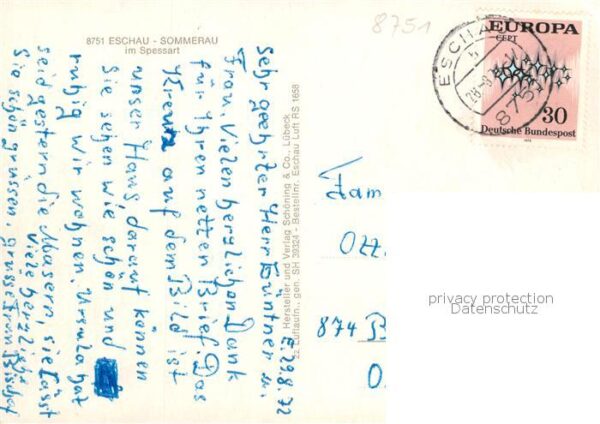 8751 ESCHAU - SOMMERAU
im Spessart
8751
ESCHAU
28.-8.
875
EUROPA
CEPT
30
Deutsche Bundespost
E. 29.8.72
Sehr geehrter Herr Güntner u.
Frau, Vielen herzlichen Dank
für Ihren netten Brief. Das
Kreuz auf dem Bild ist
unser Haus darauf können
Sie sehen wie schön und
ruhig wir wohnen. Ursula hat
seid gestern die Masern, sie lässt
Sie schön grüssen, Viele herzliche
grüsse Fran Bischof
Hersteller und Verlag Schöning & Co., Lübeck
zz Luftaufn., gen. SH 39324 - Bestellnr. Eschau Luft RS 1658
Fam
Ott
874 B
O
privacy protection
Datenschutz